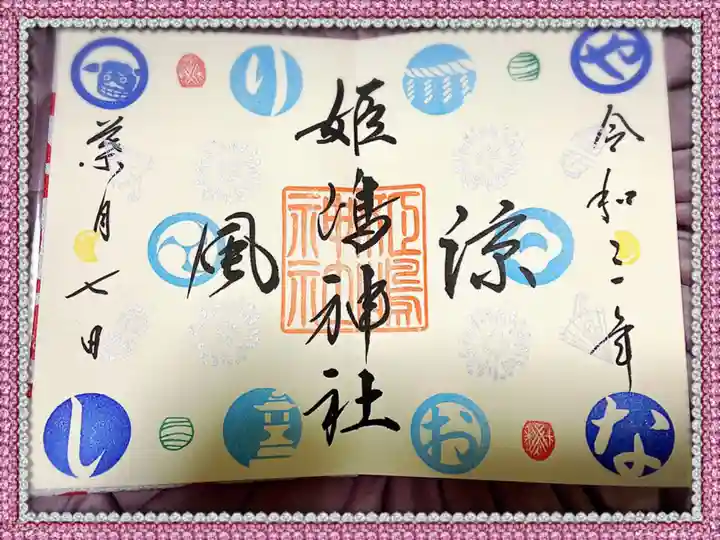 や
り
な
お
し
令和三年
涼
姫嶋神社
風
葉月七日
姫嶋
神社